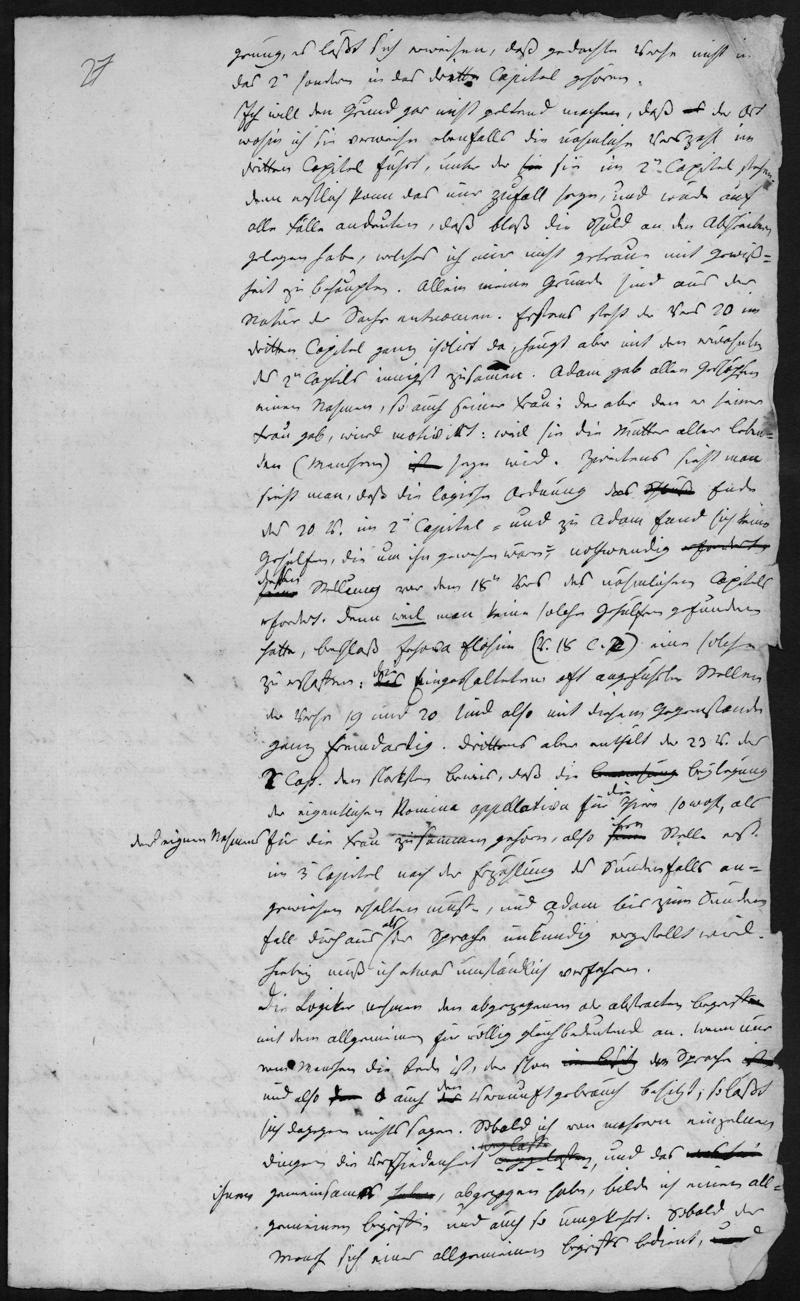 27
grung, es läßt sich erweisen, daß gedachte Verse nicht in
das 2te sondern in das dritte Capitel gehören.
Ich will den Grund gar nicht geltend machen, daß der Ort
wohin ich sie verweise ebenfalls die nähmliche Verszahl im
dritten Capitel führt, unter der sie im 2ten Capitel stehen,
denn erstlich kann das nur Zufall seyn, und würde auf
alle Fälle andeuten, daß bloß die Schuld an den Abschreibern
gelegen habe, welches ich mir nicht getraue mit Gewiß=
heit zu behaupten. Allein meine Gründe sind aus der
Natur der Sache entnommen. Erstens steht der Vers 20 im
dritten Capitel ganz isolirt da, hängt aber mit dem erwähnten
des 2ten Capitels innigst zusammen. Adam gab allen Geschöpfen
einen Nahmen, so auch seiner Frau; der aber den er seiner
Frau gab, wird motivirt: weil sie die Mutter aller leben=
den (Menschen) ist seyn wird. Zweitens sieht man
sieht man, daß die logische Ordnung das Ende
des 20 V. im 2ten Capitel = und zu Adam fand sich keine
Gehülfen, die um ihn gewesen wären = nothwendig erfordert,
dessen Stellung vor dem 18ten Vers des nähmlichen Capitels
erfordert. Denn weil man keine solche Gehülfen gefunden
hatte, beschloß Jehova Elohim (V. 18 C. 2) eine solche
zu erschaffen; die eingeschalteten oft angeführten Stellen
der Verse 19 und 20 sind also mit diesem Gegenstande
ganz fremdartig. Drittens aber enthält der 23 V. des
2 Cap. den stärksten Beweis, daß die Beylegung
der eigentlichen Nomina appellativa für die Thiere sowohl, als
des eignen Nahmens für die Frau zusammen gehören, also ihre Stelle erst
im 3ten Capitel nach der Erzählung des Sündenfalls an=
gewiesen erhalten müßte, und Adam bis zum Sünden
fall durchaus als der Sprache unkundig vorgestellt wird.
Hiebey muß ich etwas umständlich verfahren.
Die Logiker nehmen den abgezogenen oder abstracten Begriff
mit dem allgemeinen für völlig gleichbedeutend an. Wenn nur
von Menschen die Rede ist, der schon im Besitz der Sprache ist
und also auch den Vernunftgebrauch besitzt; so läßt
sich dagegen nichts sagen. Sobald ich von mehrern einzelnen
Dingen die Verschiedenheit weglasse, und das
ihnen gemeinsames, abgezogen habe, bilde ich einen all=
gemeinen Begriff; und auch so umgekehrt. Sobald der
Mensch sich eines allgemeinen Begriffs bedient,